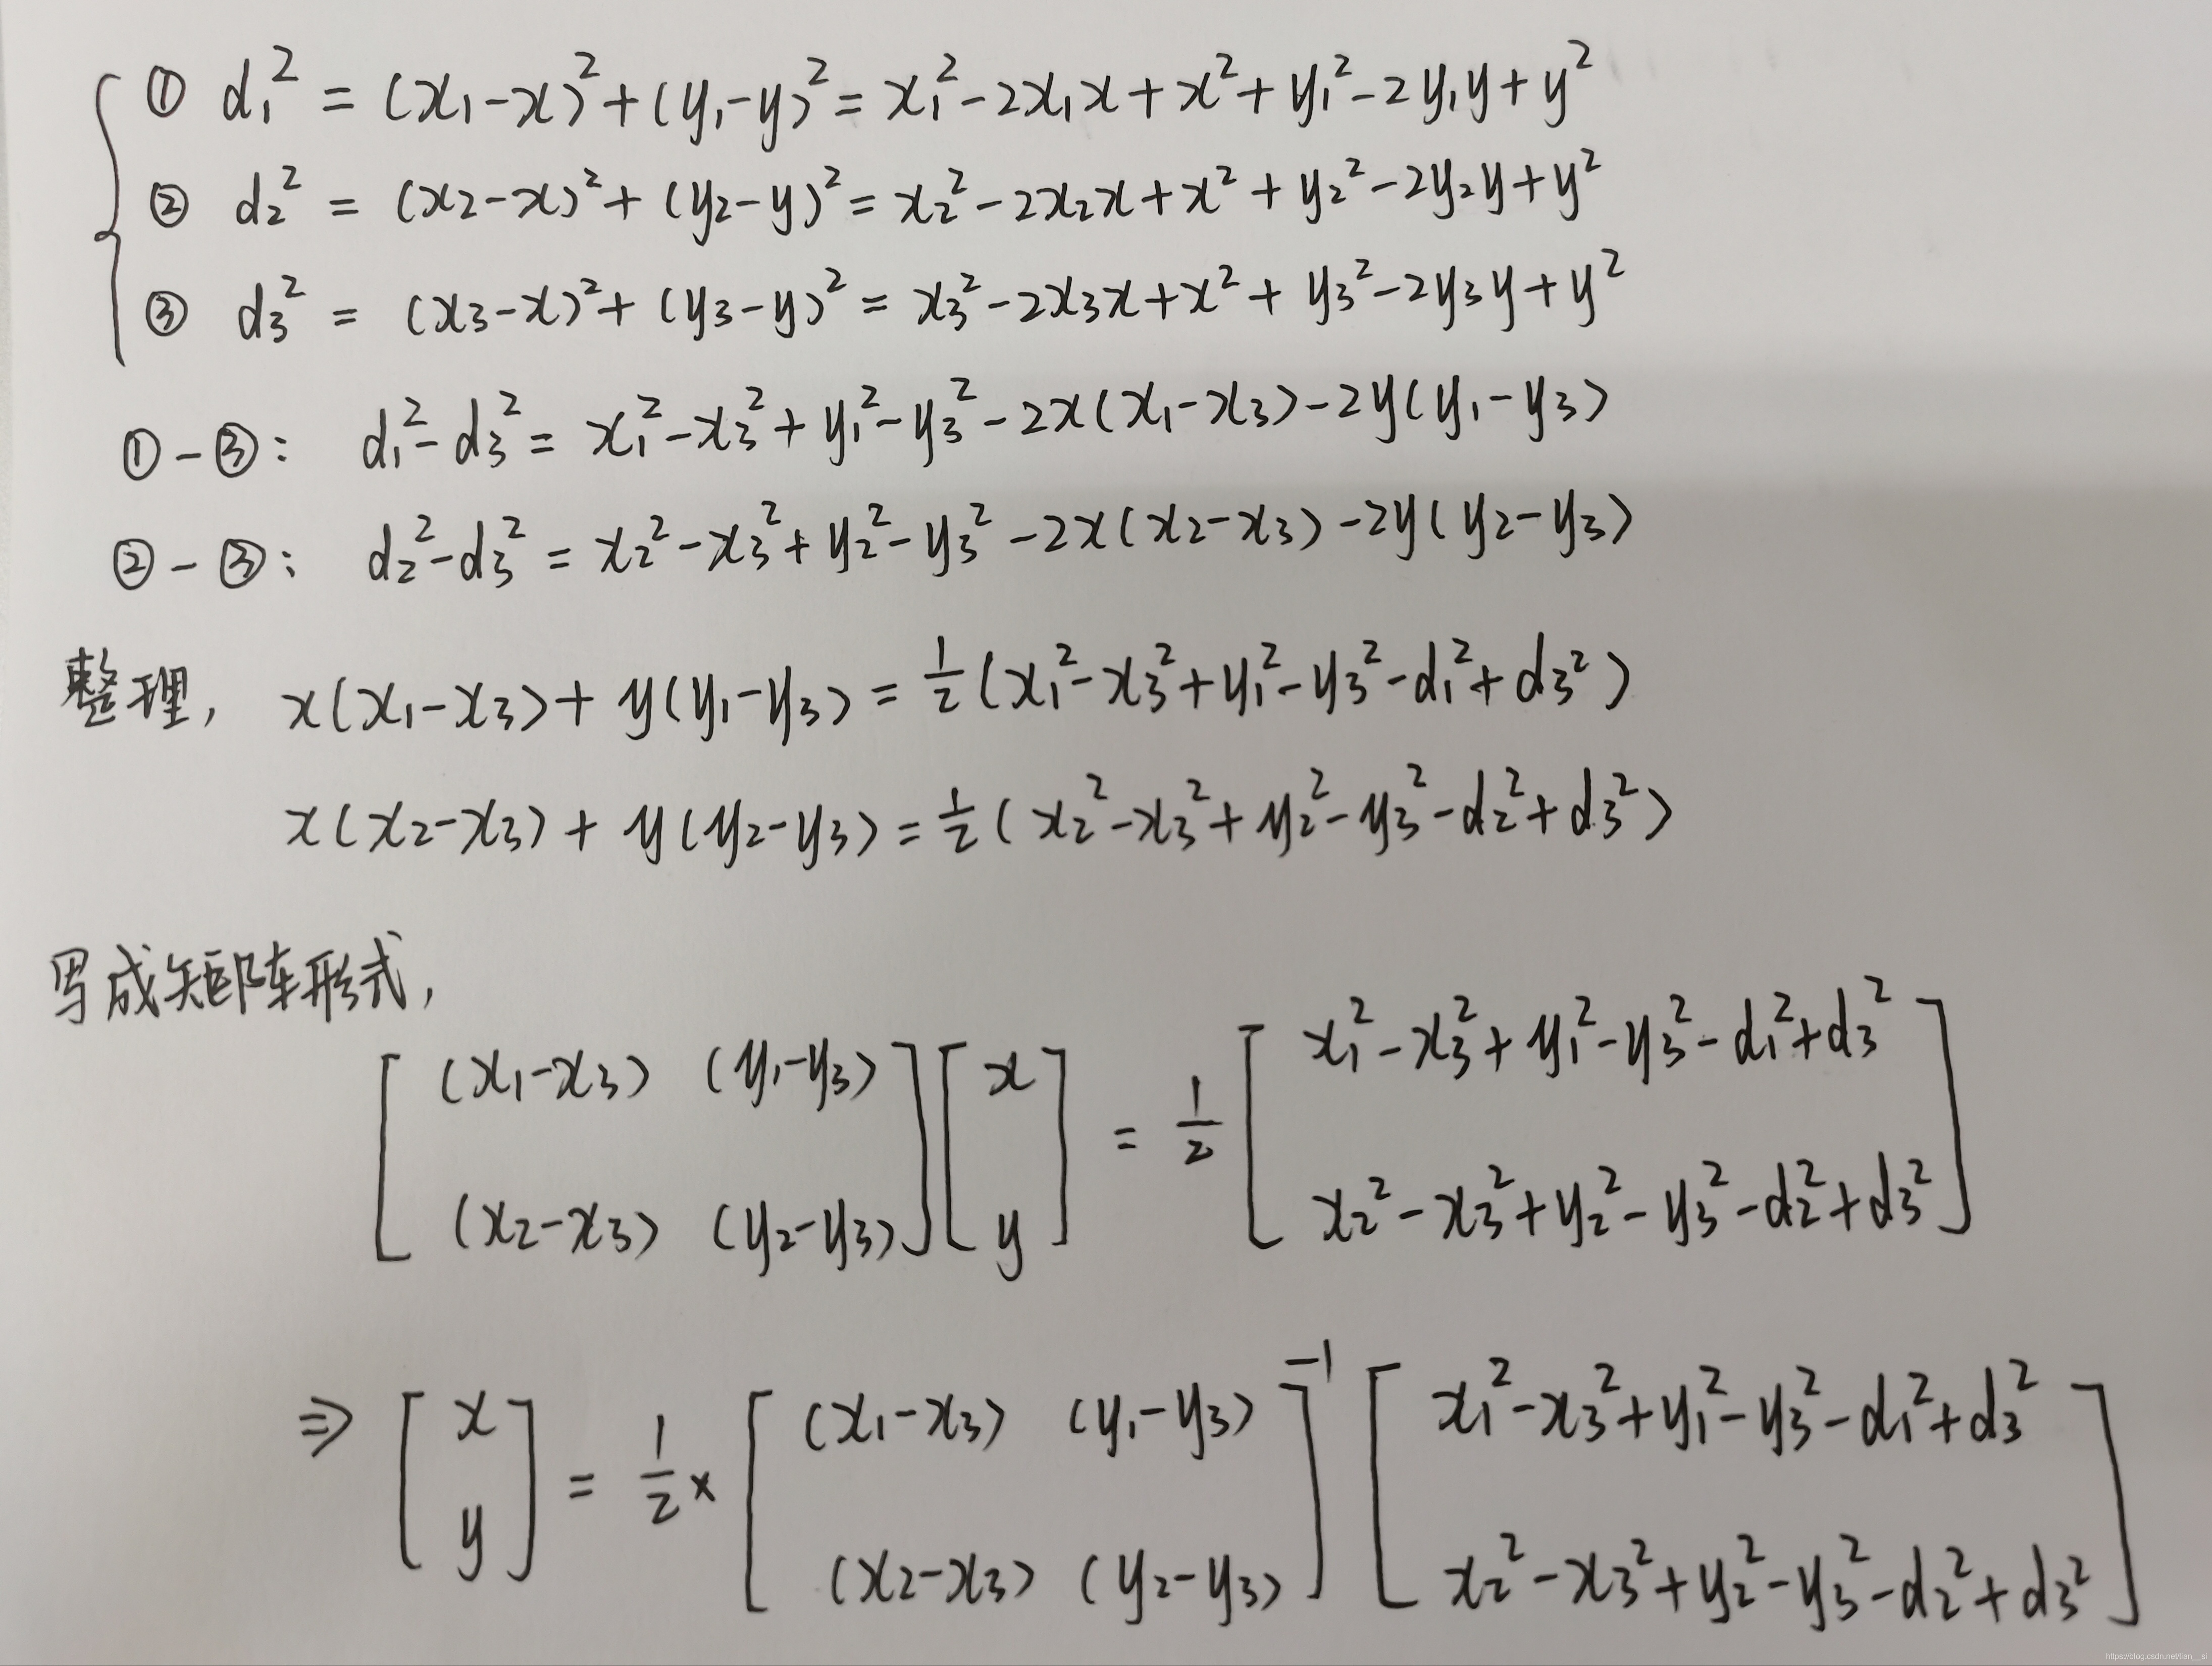 ① d₁² = (x₁-x)²+(y₁-y)² = x₁²-2x₁x+x²+y₁²-2y₁y+y²
② d₂² = (x₂-x)²+(y₂-y)² = x₂²-2x₂x+x²+y₂²-2y₂y+y²
③ d₃² = (x₃-x)²+(y₃-y)² = x₃²-2x₃x+x²+y₃²-2y₃y+y²
①-③: d₁²-d₃² = x₁²-x₃²+y₁²-y₃²-2x(x₁-x₃)-2y(y₁-y₃)
②-③: d₂²-d₃² = x₂²-x₃²+y₂²-y₃²-2x(x₂-x₃)-2y(y₂-y₃)
整理, x(x₁-x₃)+y(y₁-y₃) = ½(x₁²-x₃²+y₁²-y₃²-d₁²+d₃²)
x(x₂-x₃)+y(y₂-y₃) = ½(x₂²-x₃²+y₂²-y₃²-d₂²+d₃²)
写成矩阵形式,
[(x₁-x₃) (y₁-y₃)] [x] = ½ [x₁²-x₃²+y₁²-y₃²-d₁²+d₃²]
[(x₂-x₃) (y₂-y₃)] [y] [x₂²-x₃²+y₂²-y₃²-d₂²+d₃²]
⇒ [x] = ½× [(x₁-x₃) (y₁-y₃)]⁻¹ [x₁²-x₃²+y₁²-y₃²-d₁²+d₃²]
[y] [(x₂-x₃) (y₂-y₃)] [x₂²-x₃²+y₂²-y₃²-d₂²+d₃²]
https://blog.csdn.net/lian__si